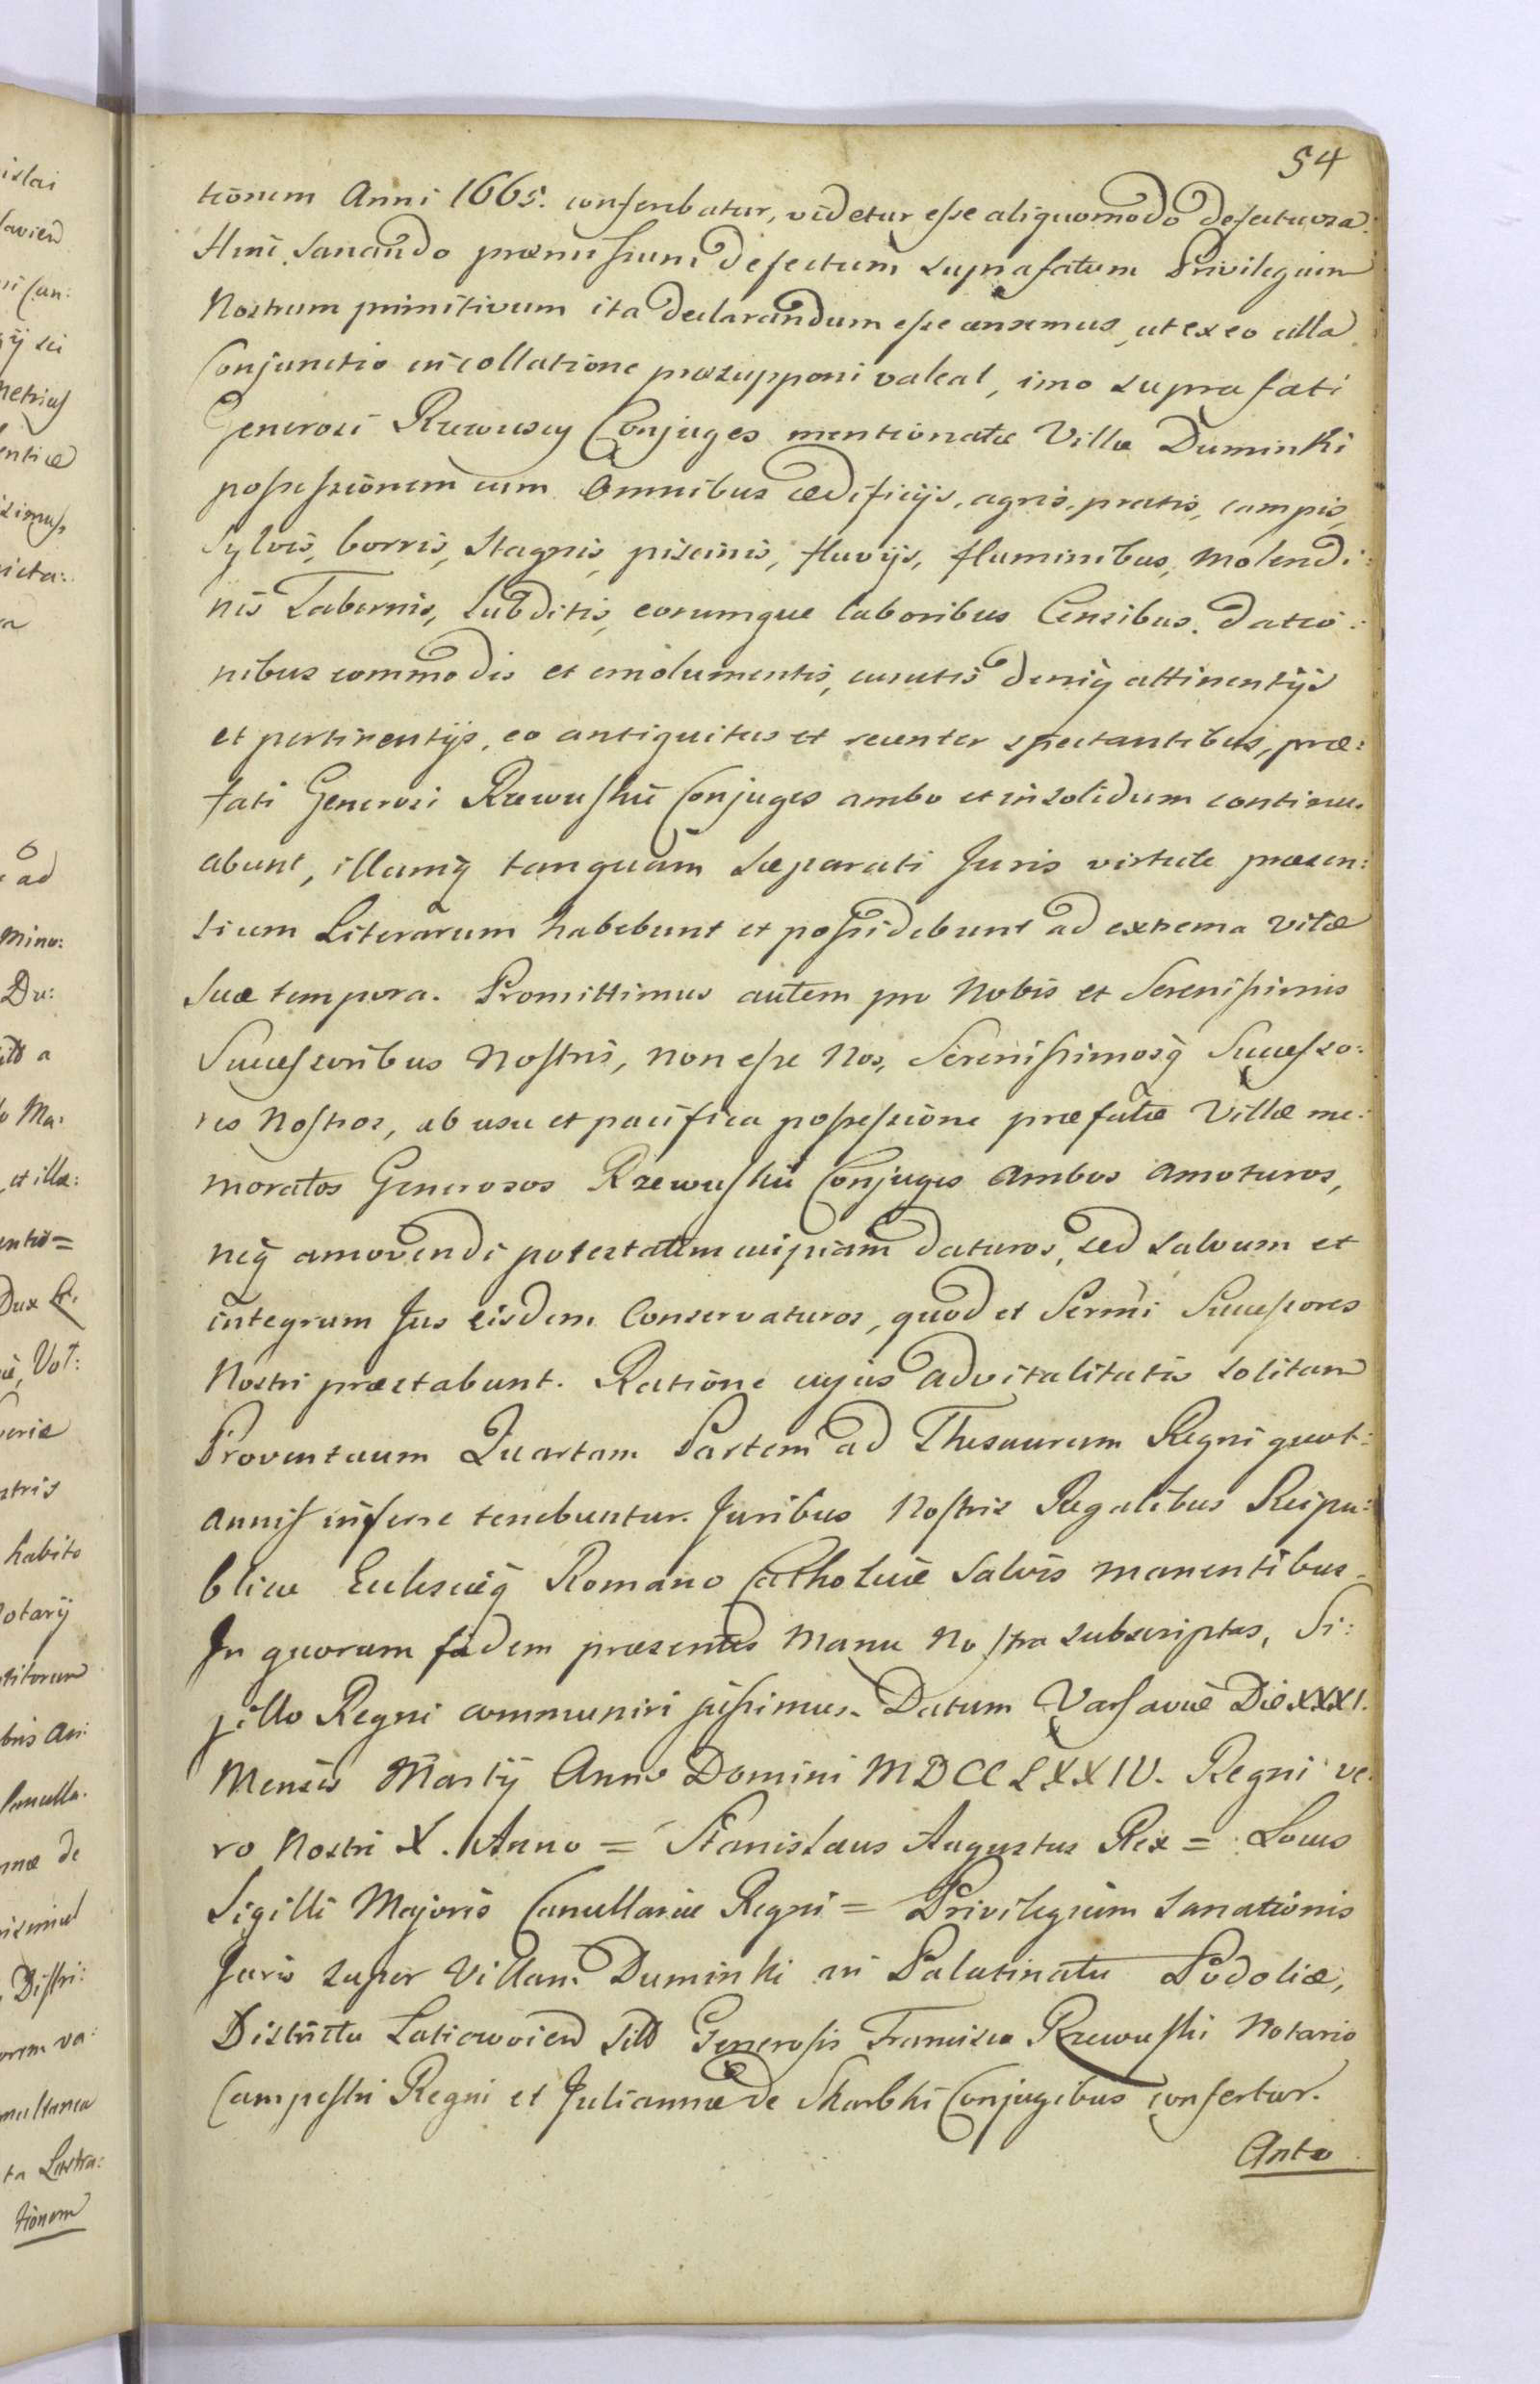 54
tionem Anni 1665. conscribatur, videtur esse aliquomodo defectuosa.
Hinc sanando præmissum defectum suprafatum Privilegium
Nostrum primitivum ita declarandum esse censemus, ut ex eo ulla
Conjunctio in collatione præsupponi valeat, imo suprafati
Generosi Rzewuscy Conjuges mentionatæ Villæ Duminki
possessionem cum omnibus ædificijs, agris, pratis, campis,
Sylvis, borris, stagnis, piscinis, fluvijs, fluminibus, molendi:
nis Tabernis, Subditis, eorumque laboribus Censibus. datio:
nibus commodis et emolumentis, cunctis deniq attinentijs
et pertinentijs, eo antiquitus et recenter spectantibus, præ:
fati Generosi Rzewuskii Conjuges ambo et in solidum continu:
abunt, illamq tanquam separati Juris virtute præsen:
tium Literarum habebunt et possidebunt ad extrema vitæ
suæ tempora. Promittimus autem pro Nobis et Serenissimis
Successoribus Nostris, non esse Nos, Serenissimosq Successo:
res Nostros, ab usu et pacifica possessione præfatæ Villæ me:
moratos Generosos Rzewuskii Conjuges ambos amoturos,
neq amovendi potestatem cuipiam daturos, sed salvum et
integrum Jus eisdem Conservaturos, quod et Sermi Successores
Nostri præstabunt. Ratione cujus advitalitatis solitam
Proventuum Quartam Partem ad Thesaurum Regni quot:
annis inferre tenebuntur. Juribus Nostris Regalibus Reipu:
blicæ Ecclesiæq Romano Catholicæ salvis manentibus.
In quorum fidem præsentes Manu Nostra subscriptas, Si:
gillo Regni communiri jussimus. Datum Varsaviæ Die XXXI.
Mensis Martij Anno Domini MDCCLXXIV. Regni ve:
ro Nostri X. Anno = Stanislaus Augustus Rex = Locus
Sigilli Majoris Cancellariæ Regni = Privilegium Sanationis
Juris super Villam Duminki in Palatinatu Podoliæ,
Districtu Laticovien sitd Generosis Francisco Rzewuski Notario
Campestri Regni et Juliannæ de Skarbki Conjugibus confertur.
Anto
islai
avien
ni Can:
ij sci
netrius
entiæ
simus,
icta:
a
ad
mino:
Du:
itd a
Ma:
et illa:
entio=
Dux
Vol:
veriæ
stris
habito
Notarij
titorum
bris
Cancella.
nnæ de
Distri:
orem va:
multanea
ta Lustra:
tionem